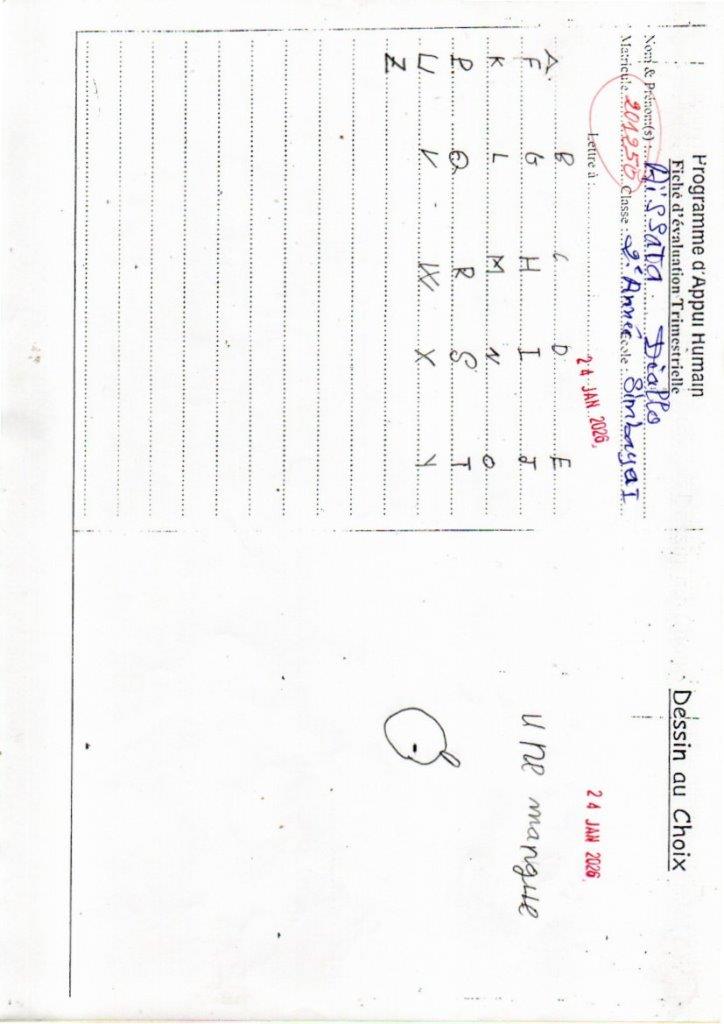 Programme d'Appui Humain
Fiche d'évaluation Trimestrielle
Nom & Prénom(s) : Aïssata Diallo
Matricule 201250 Classe : 2e Année Ecole : Simbaya I
Lettre à :
24 JAN. 2026
A B C D E
F G H I J
K L M N O
P Q R S T
U V W X Y
Z
Dessin au Choix
24 JAN 2026
une mangue